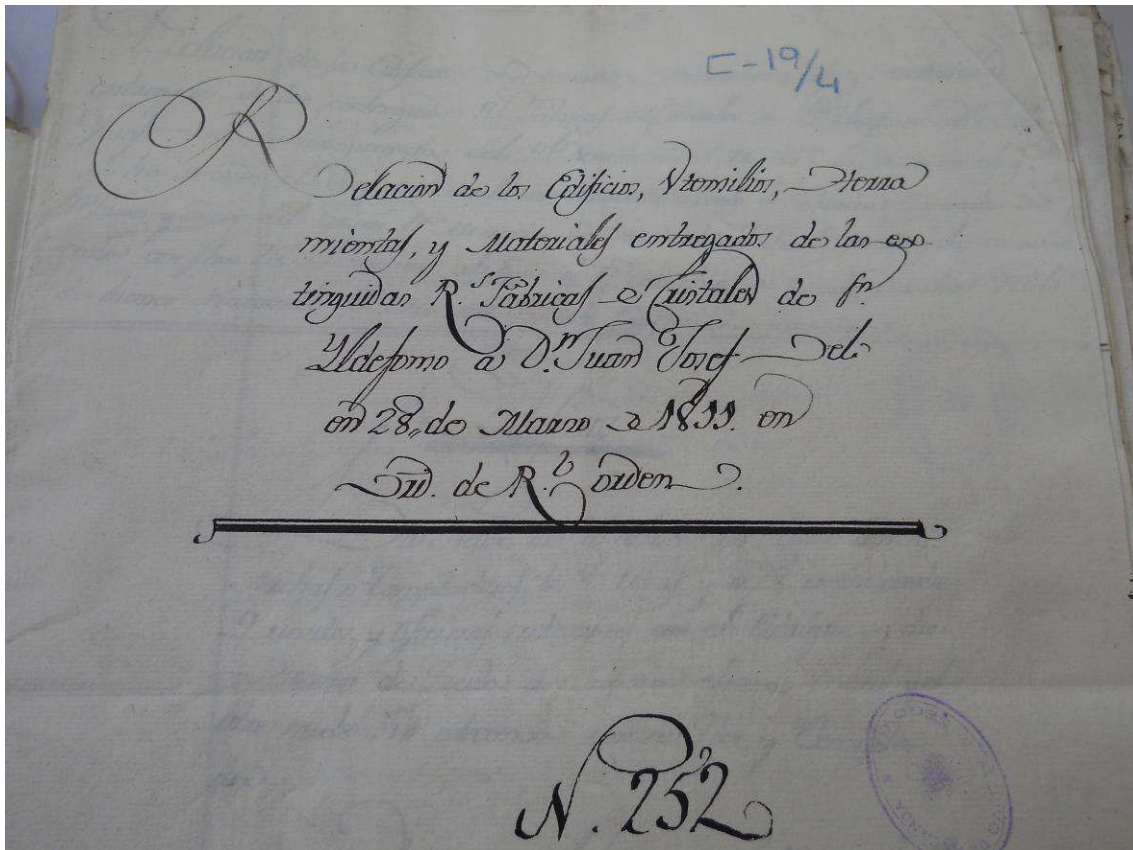 C-19/4
Relacion de los Edificios, Vtensilios, Herra
mientas, y Materiales entregados de las ex-
tinguidas R.s Fabricas de Cristales de Sn.
Yldefonso a D.n Juan Josef
en 28,, de Marzo de 1811. en
de R.l orden.
N. 252